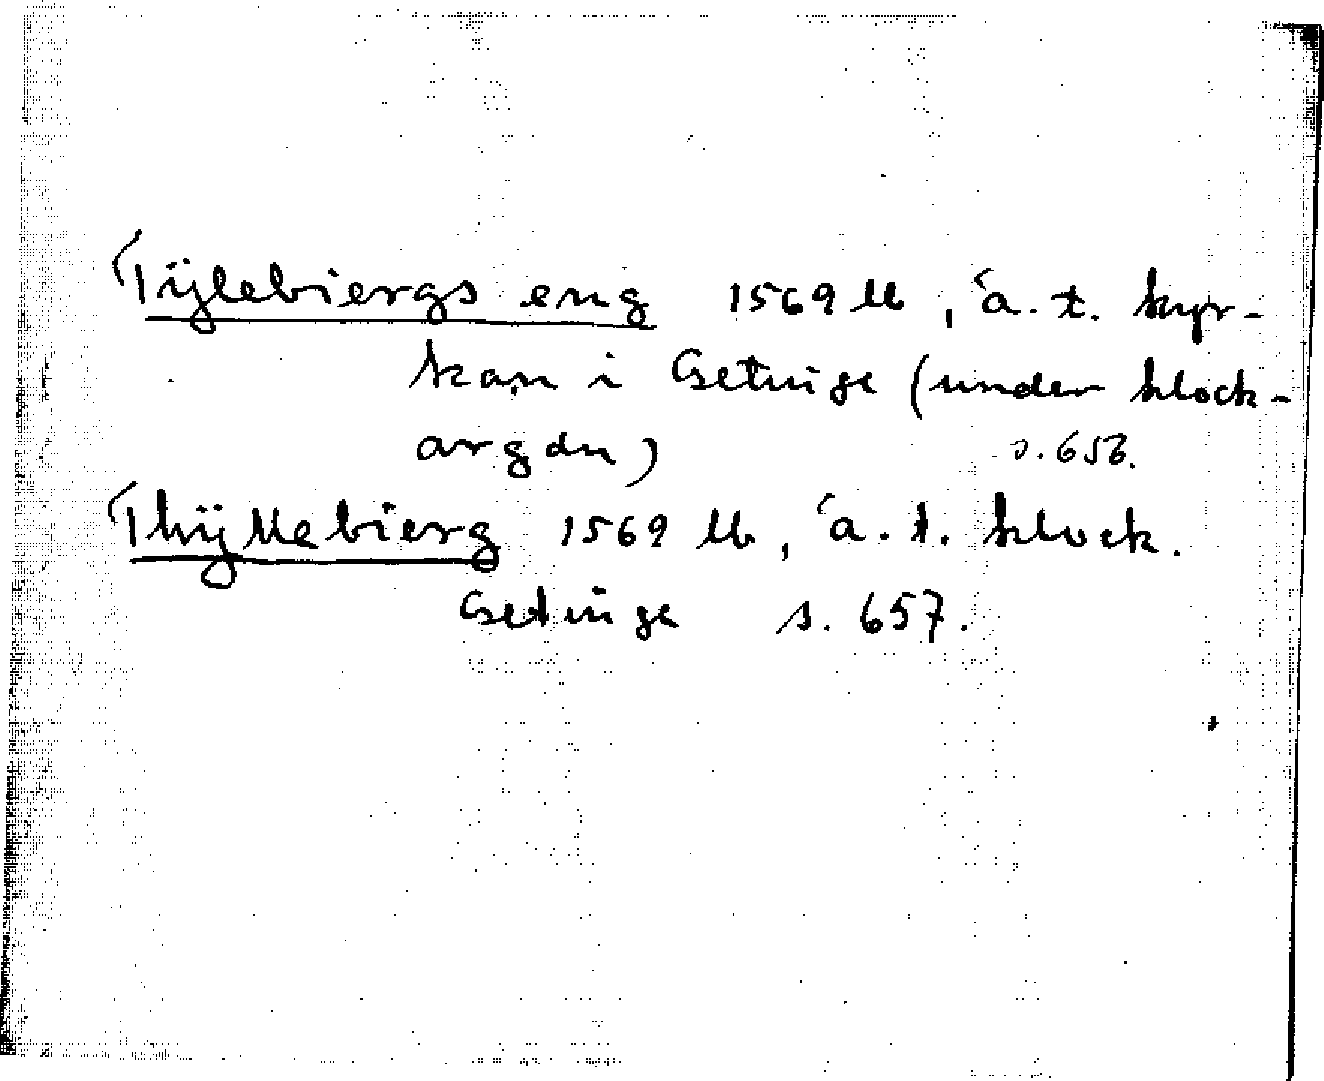 Tÿlebiergs eng 1569 lb, ä. t. kyr-
kan i Getinge (under klock-
argdn) s. 656.
Thÿllebierg 1569 lb, ä. t. klock.
Getinge s. 657.